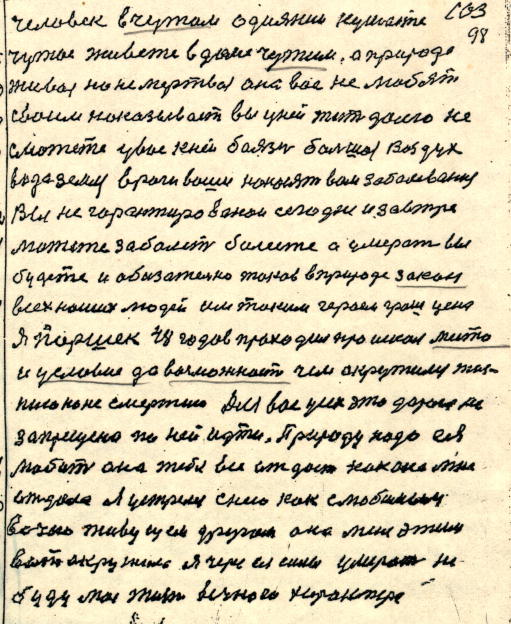 человек в чужом одиянии кушаете СОЗ
чужое живете в доме чужим, а природа 98
живая но не мертвая она вас не любят
своим наказывает вы у ней жит долго не
сможете у вас к ней боязн болшая воздух
вода земля враги ваши наносят вам заболевания
Вы не гарантированы сегодня и завтра
можете заболет болеете а умерат вы
будете и обязателно таков в природе закон
всех наших людей им таким героям грош цена
Я Паршек 48 годов проходил про искал
и условие да возможност чем окружили
не смертию Для вас усех это дорога не
запрещена по ней идти. Природу надо
любит она тебе все отдаст как она мне
отдала Я устрелся с нею как с любимым
вечно живущем другом она меня этим
вот окружила я через ея силы умерат не
буду мое жит вечного характера